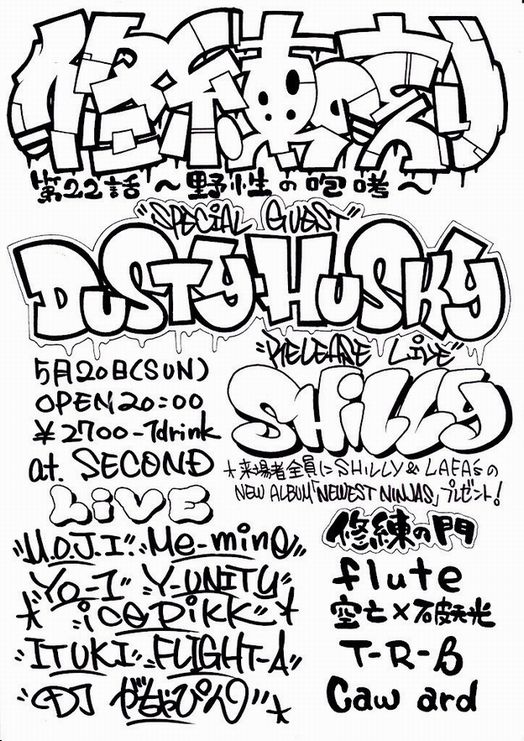 第22話 〜野性の咆哮〜
"SPECIAL GUEST"
DUSTY HUSKY
"RELEASE LIVE"
SHiLLy
5月20日(SUN)
OPEN20:00
¥2700-1drink
at. SECOND
*来場者全員にSHiLLY & LAFA'sの
NEW ALBUM「NEWEST NINJAS」プレゼント!
LiVE
"M.O.J.I" "Me-mino"
"Yo-1" "Y-UNITY"
"iCEPiKK"
"ITUKI" "FLIGHT-A"
"DJ がちゃぴん"
修練の門
flute
空亡×破天光
T-R-B
Caw ard